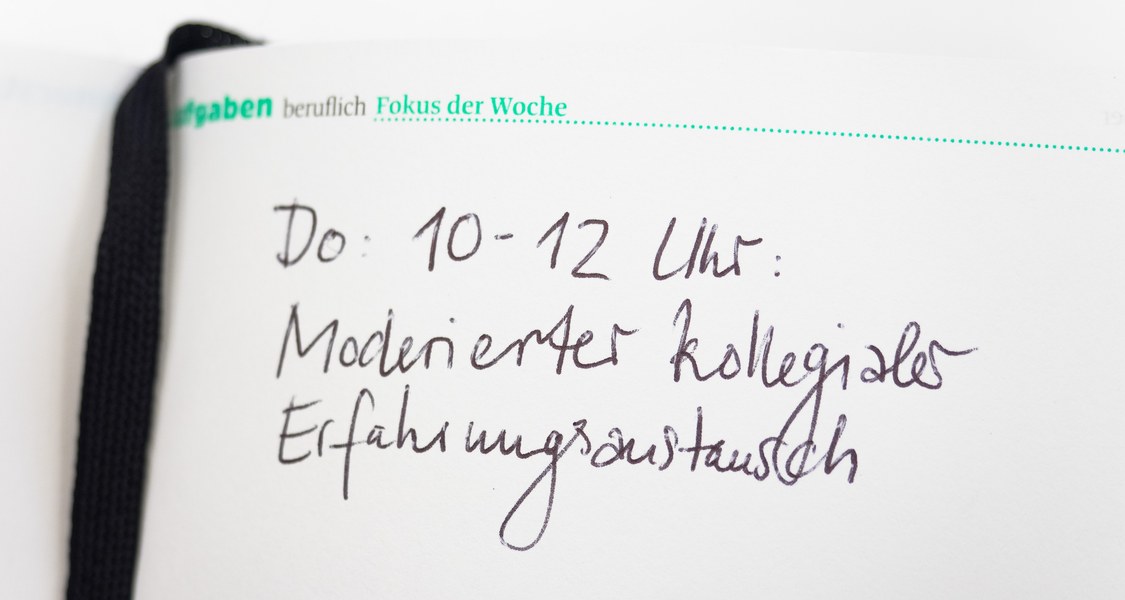 fgaben beruflich Fokus der Woche
Do: 10-12 Uhr:
Moderierter kollegialer
Erfahrungsaustausch